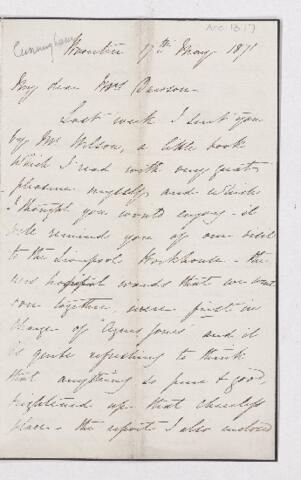 Acc 1317
Cunningham
17th May 1871
My dear Mrs Dawson.
Last week I sent you
by Mr Wilson, a little book
which I read with very great
pleasure myself, and which
I thought you would enjoy - it
will remind you of our visit
to the Liverpool Workhouse - the
hospital wards that we went
together were first in
charge of "Agnes Jones" and it
is quite refreshing to think
that anything so pure & good,
brightened up that cheerless
place - the reports I also enclosed